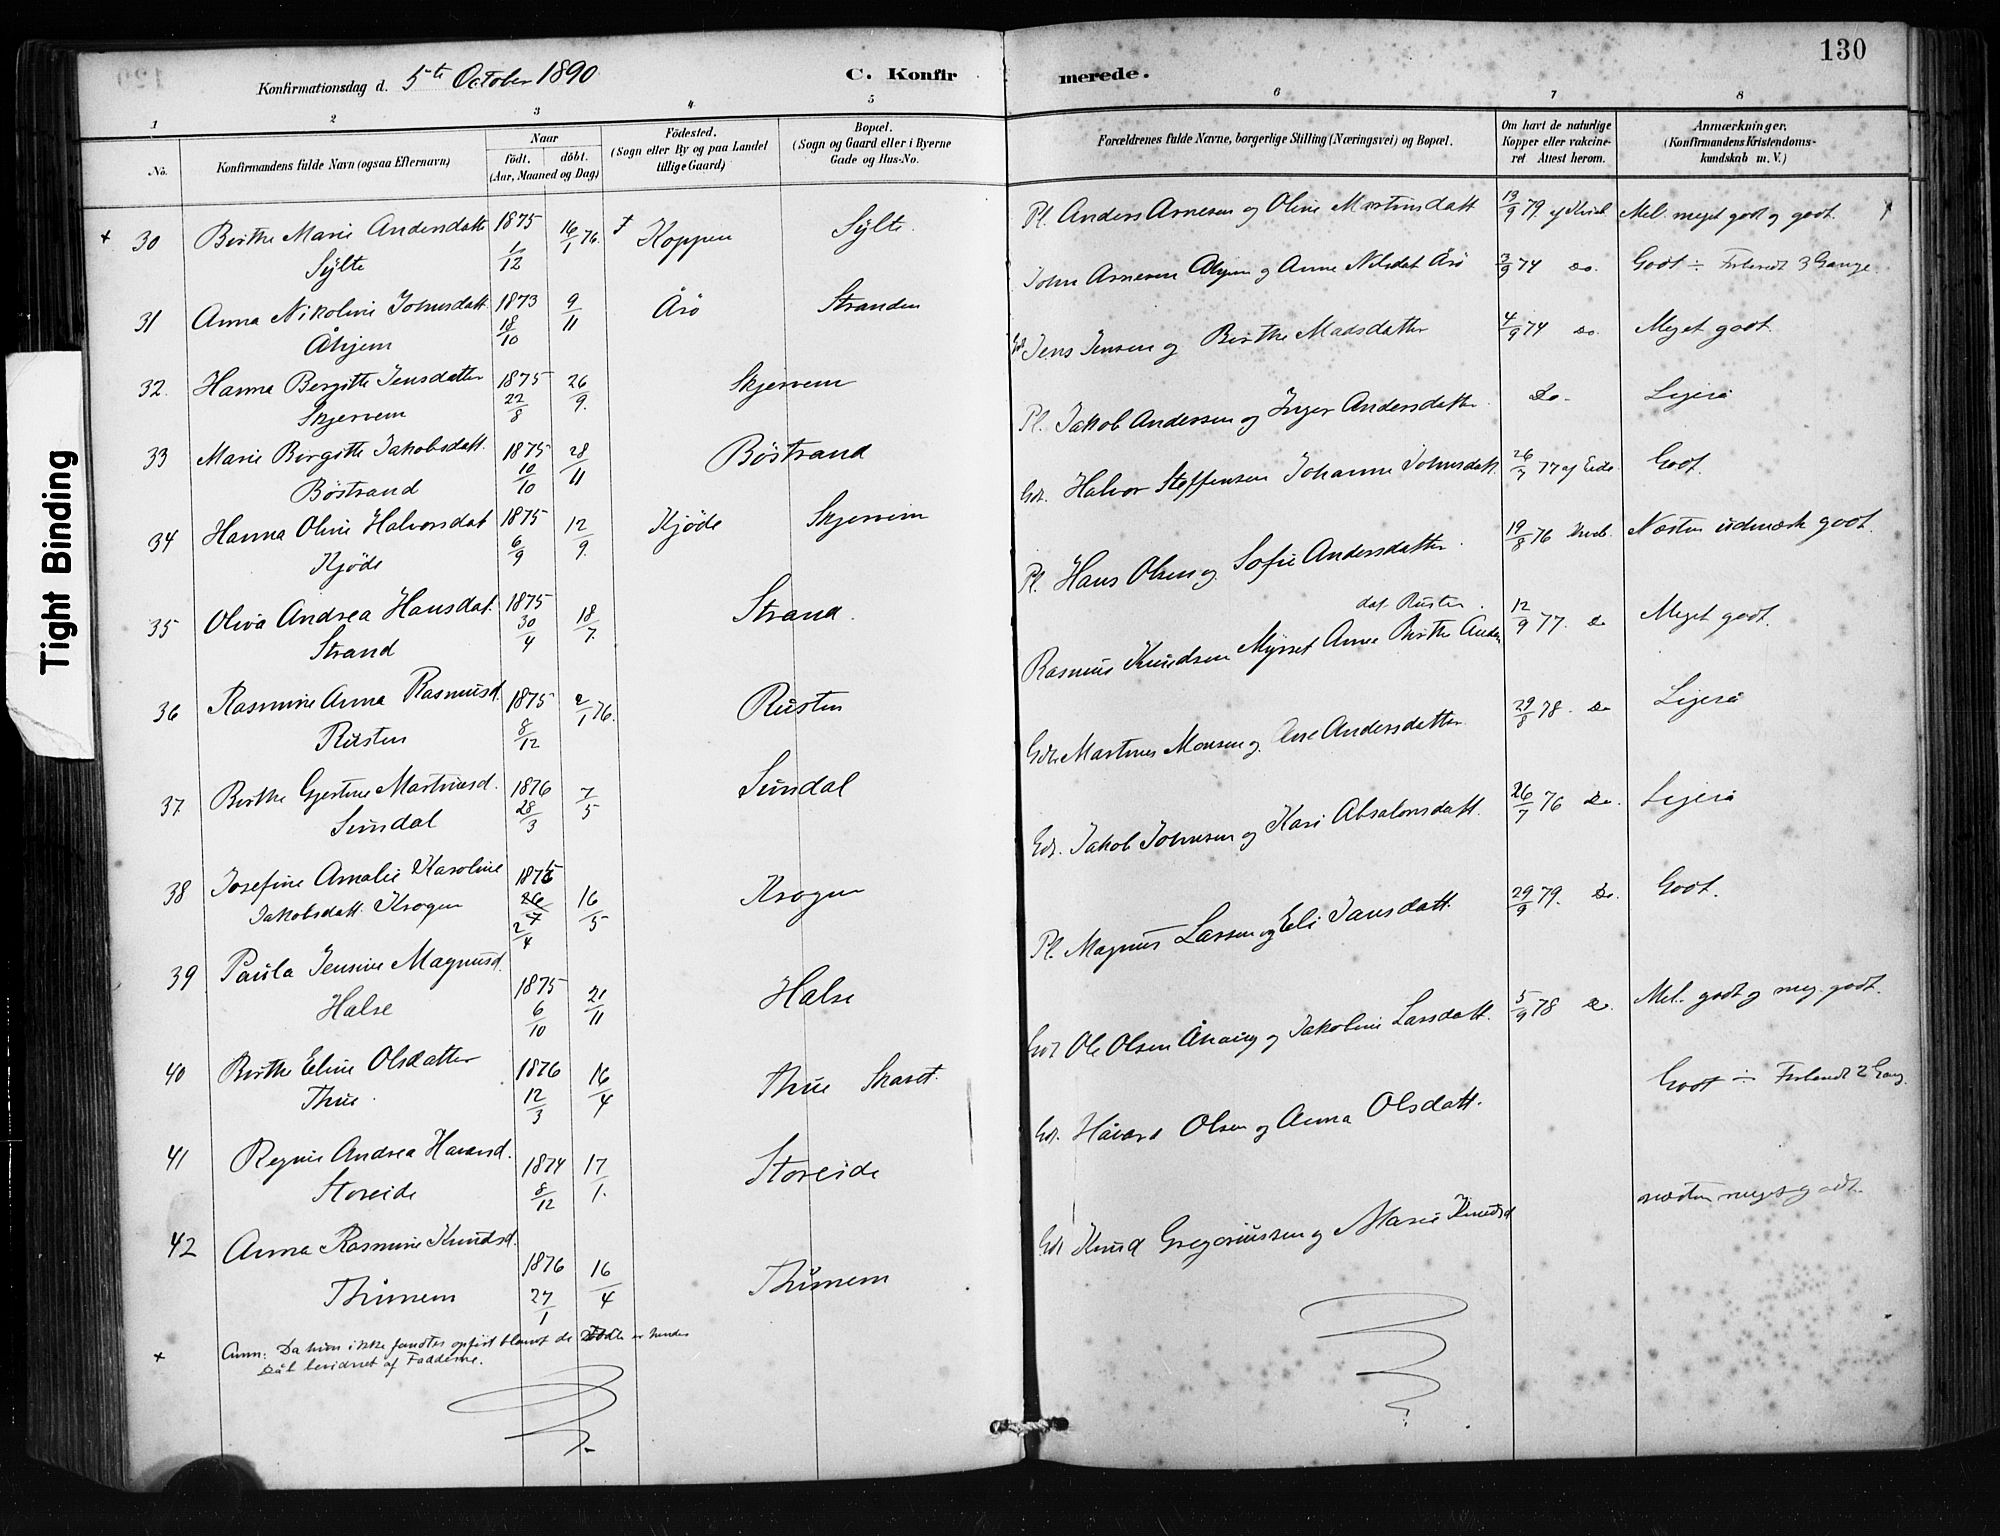 130
Konfirmationsdag d. 5te October 1890
C. Konfirmerede.
1 2 3 4 5 6 7 8
No.
Konfirmandens fulde Navn (ogsaa Efternavn)
Naar
födt. döbt.
(Aar, Maaned og Dag)
Födested.
(Sogn eller By og paa Landet
tillige Gaard)
Bopæl.
(Sogn og Gaard eller i Byerne
Gade og Hus-No.
Forældrenes fulde Navne, borgerlige Stilling (Næringsvei) og Bopæl.
Om havt de naturlige
Kopper eller vakcine-
ret Attest herom.
Anmærkninger.
(Konfirmandens Kristendoms-
kundskab m. V.)
+ 30 Birthe Marie Andersdatt 1875 16/1 76. Koppen Sylte. Pl. Anders Arnesen og Oline Martinsdatt 13/9 79. Mel. meget godt og godt.
Sylte 1/12
31 Anna Nikoline Johnsdatt 1873 9/11 Årö Stranden John Arnesen Åhjem og Anne Nilsdat Årö 3/9 74 Do. Godt ÷ Forberedt 3 Gange
Åhjem 18/10
32. Hanna Bergitte Jensdatter 1875 26/9. Skjervem Gdr. Jens Jensen og Birthe Madsdatter 4/9 74 Do. Meget godt.
Skjervem 22/8
33 Marie Birgitte Jakobsdatt. 1875 28/11 Böstrand Pl. Jakob Andersen og Inger Andersdatter. Do. Ligeså
Böstrand 10/10
34 Hanna Oline Halvorsdat 1875 12/9. Kjöde Skjervem Gdr. Halvor Steffensen Johanne Johnsdatt. 26/7 77 af Eide Godt.
Kjöde 6/9
35 Oliva Andrea Hansdat. 1875 18/7. Strand. Pl. Hans Olsen og Sofie Andersdatter. 19/8 76 Næsten udmærk. godt.
Strand 30/4
36 Rasmine Anna Rasmusd. 1875 2/1 76. Rusten Rasmus Knudsen Myrset Anne Birthe Anders
dat. Rusten. 12/9 77. Do Meget godt.
Rusten 8/12
37 Birthe Gjertine Martinusd. 1876 7/5 Sundal Gdr. Martinus Monsen og Ane Andersdatter 29/8 78. Do Ligeså
Sundal 28/3
38 Josefine Amalie Karoline 1876 16/5 Krogen Gdr. Jakob Johnsen og Kari Absalonsdatt. 26/7 76 Do. Ligeså
Jakobsdatt. Krogen 26/7
2/4
39 Paula Jensine Magnusd. 1875 21/11 Halse Pl. Magnus Larsen og Eli Jansdatt. 29/9 79. Do. Godt.
Halse 6/10
40 Birthe Eline Olsdatter 1876 16/4 Thue Skaret. Gdr Ole Olsen og Jakobine Larsdatt. 5/9 78 Do. Mel. godt og meg. godt.
Thue. 12/3
41 Regine Andrea Havardd. 1874 17/1. Storeide Gdr. Håvard Olsen og Anna Olsdatt. Godt ÷ Forberedt 2 Gang.
Storeide 8/12
42 Anna Rasmine Knudsd. 1876 16/4 Thunem Gdr Knud Gregoriussen og Marie Knudsd næsten meget godt.
Thunem 27/1
+ Anm: Da hun ikke fandtes opfört blandt de Födte er hendes
Dåb bevidnet af Fadderne.
Tight Binding